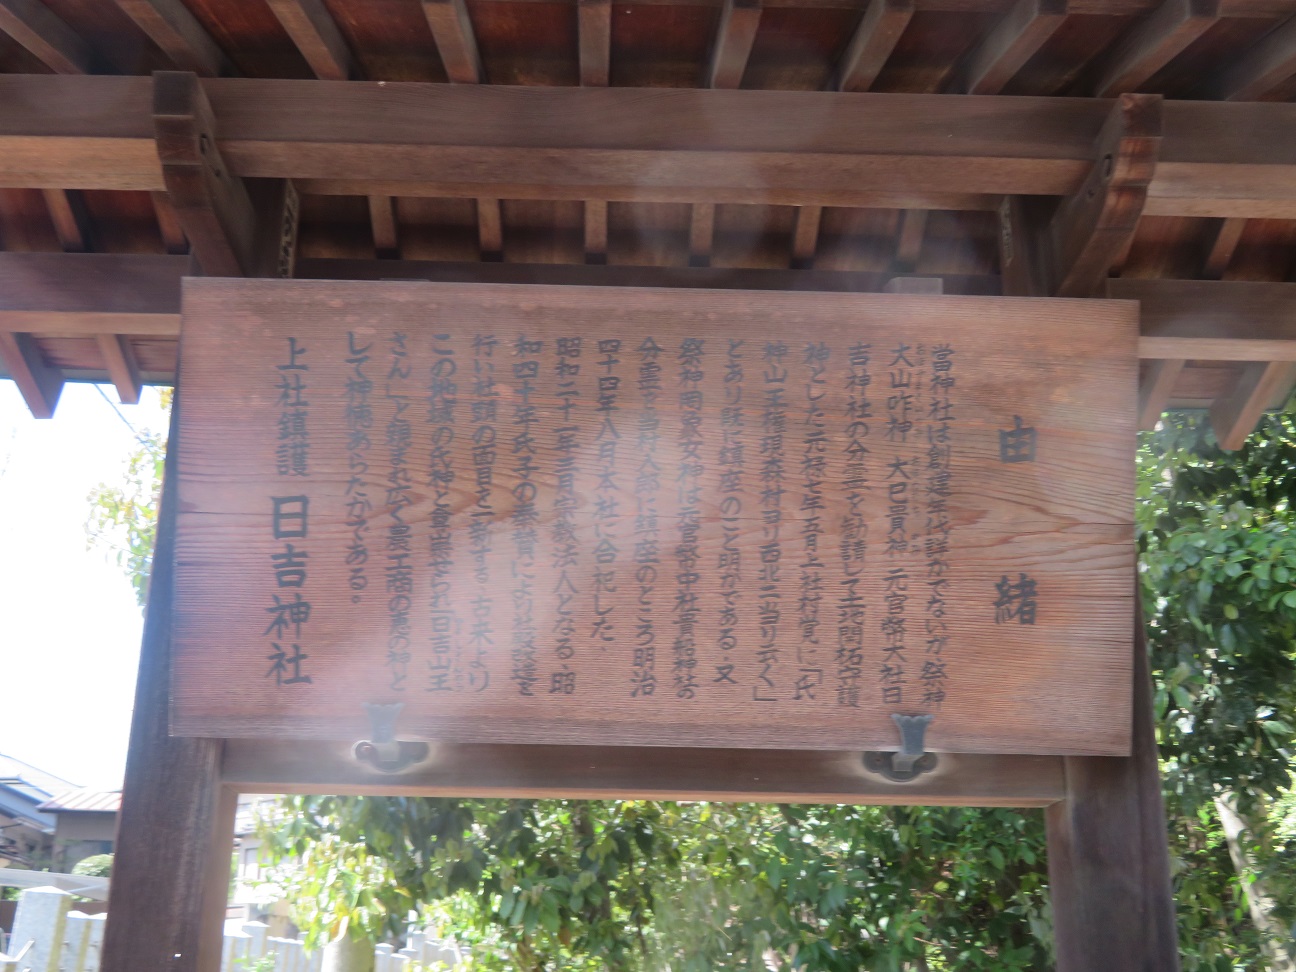 由緒
當神社は創建年代詳かでないが祭神
大山咋神 大巳貴神 元官幣大社日
吉神社の分霊を勧請して
神とした元禄七年五月上社村覚に「氏
神山王権現森村ヨリ西北ニ当リ云々」
とあり既に鎮座のこと明かである、又
祭神岡象女神は元官幣中社貴船神社の
分霊を当村入部に鎮座のところ明治
四十四年八月本社に合祀した、
昭和二十一年三月宗教法人となる、昭
和四十年氏子の奉賛により社殿改造を
行い社頭の面目を一新する、古来より
この地域の氏神と尊崇せられ「日吉山王
さん」と親まれ広く農工商の恵の神と
して神徳あらたかである。
上社鎮護 日吉神社